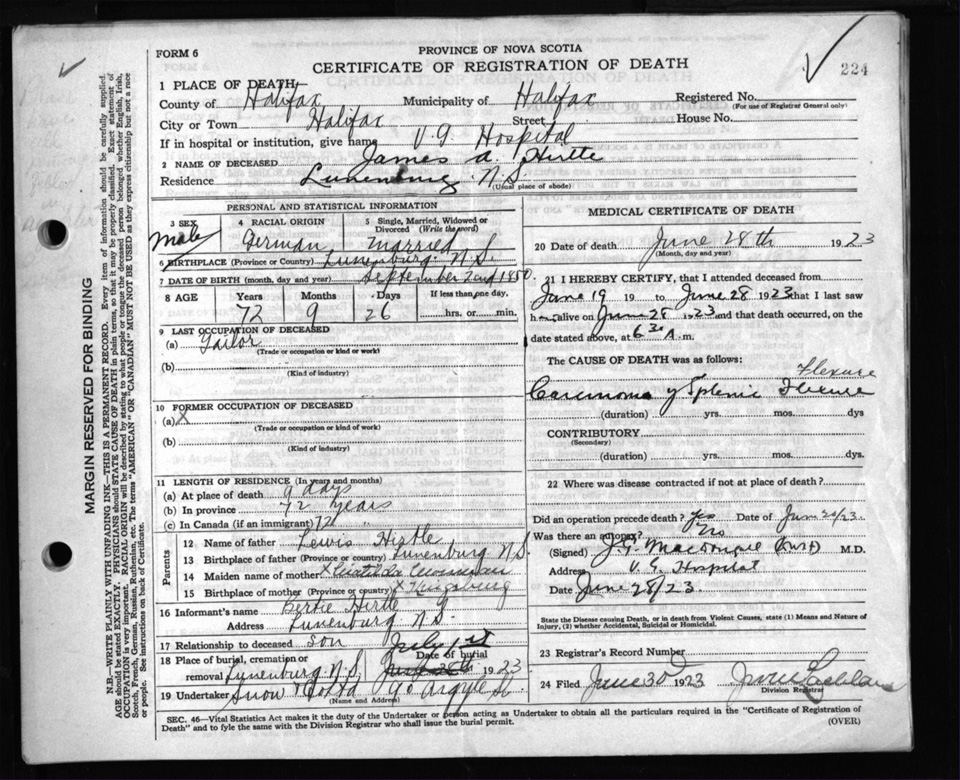 FORM 6
PROVINCE OF NOVA SCOTIA
CERTIFICATE OF REGISTRATION OF DEATH
224
1 PLACE OF DEATH
County of Halifax Municipality of Halifax Registered No.
(For use of Registrar General only)
City or Town Halifax Street House No.
If in hospital or institution, give name V G Hospital
2 NAME OF DECEASED James A. Hirtle
Residence Lunenburg N.S.
(Usual place of abode)
PERSONAL AND STATISTICAL INFORMATION
3 SEX 4 RACIAL ORIGIN 5 Single, Married, Widowed or Divorced (Write the word)
Male German Married
6 BIRTHPLACE (Province or Country) Lunenburg N.S.
7 DATE OF BIRTH (month, day and year) September 2nd 1850.
8 AGE Years Months Days If less than one day,
72 9 26 hrs. or min.
9 LAST OCCUPATION OF DECEASED
(a) Tailor
(Trade or occupation or kind of work)
(b)
(Kind of industry)
10 FORMER OCCUPATION OF DECEASED
(a) X
(Trade or occupation or kind of work)
(b)
(Kind of industry)
11 LENGTH OF RESIDENCE (In years and months)
(a) At place of death 9 days
(b) In province 72 years
(c) In Canada (if an immigrant) 72 "
Parents
12 Name of father Lewis Hirtle
13 Birthplace of father (Province or country) Lunenburg N.S.
14 Maiden name of mother X
15 Birthplace of mother (Province or country) X
16 Informant's name Bertie Hirtle
Address Lunenburg N.S.
17 Relationship to deceased son
18 Place of burial, cremation or Date of burial July 1st
removal Lunenburg N.S. 1923
19 Undertaker Snow & Co Ltd 90 Argyle St
(Name and Address)
MEDICAL CERTIFICATE OF DEATH
20 Date of death June 28th 1923
(Month, day and year)
21 I HEREBY CERTIFY, that I attended deceased from
June 19 19 to June 28 1923 that I last saw
h alive on June 28 1923 and that death occurred, on the
date stated above, at 6 30 A. m.
The CAUSE OF DEATH was as follows:
Flexure
Carcinoma of Splenic Flexure
(duration) yrs. mos. dys
CONTRIBUTORY
(Secondary)
(duration) yrs. mos. dys.
22 Where was disease contracted if not at place of death?
Did an operation precede death? Yes Date of June 20/23.
Was there an autopsy? No
(Signed) M.D.
Address V.G. Hospital
Date June 28/23.
State the Disease causing Death, or in death from Violent Causes, state (1) Means and Nature of Injury, (2) whether Accidental, Suicidal or Homicidal.
23 Registrar's Record Number
24 Filed June 30 1923
Division Registrar
SEC. 46—Vital Statistics Act makes it the duty of the Undertaker or person acting as Undertaker to obtain all the particulars required in the "Certificate of Registration of
Death" and to fyle the same with the Division Registrar who shall issue the burial permit.
(OVER)
MARGIN RESERVED FOR BINDING
N.B.—WRITE PLAINLY WITH UNFADING INK—THIS IS A PERMANENT RECORD. Every item of information should be carefully supplied.
AGE should be stated EXACTLY. PHYSICIANS should STATE CAUSE OF DEATH in plain terms, so that it may be properly classified. Exact statement of
OCCUPATION is very important. RACIAL ORIGIN will be described by stating to what people or tongue the deceased person belonged whether English, Irish,
Scotch, French, German, Russian, Ruthenian, etc. The terms "AMERICAN" OR "CANADIAN" MUST NOT BE USED as they express citizenship but not a race
or people. See instructions on back of Certificate.